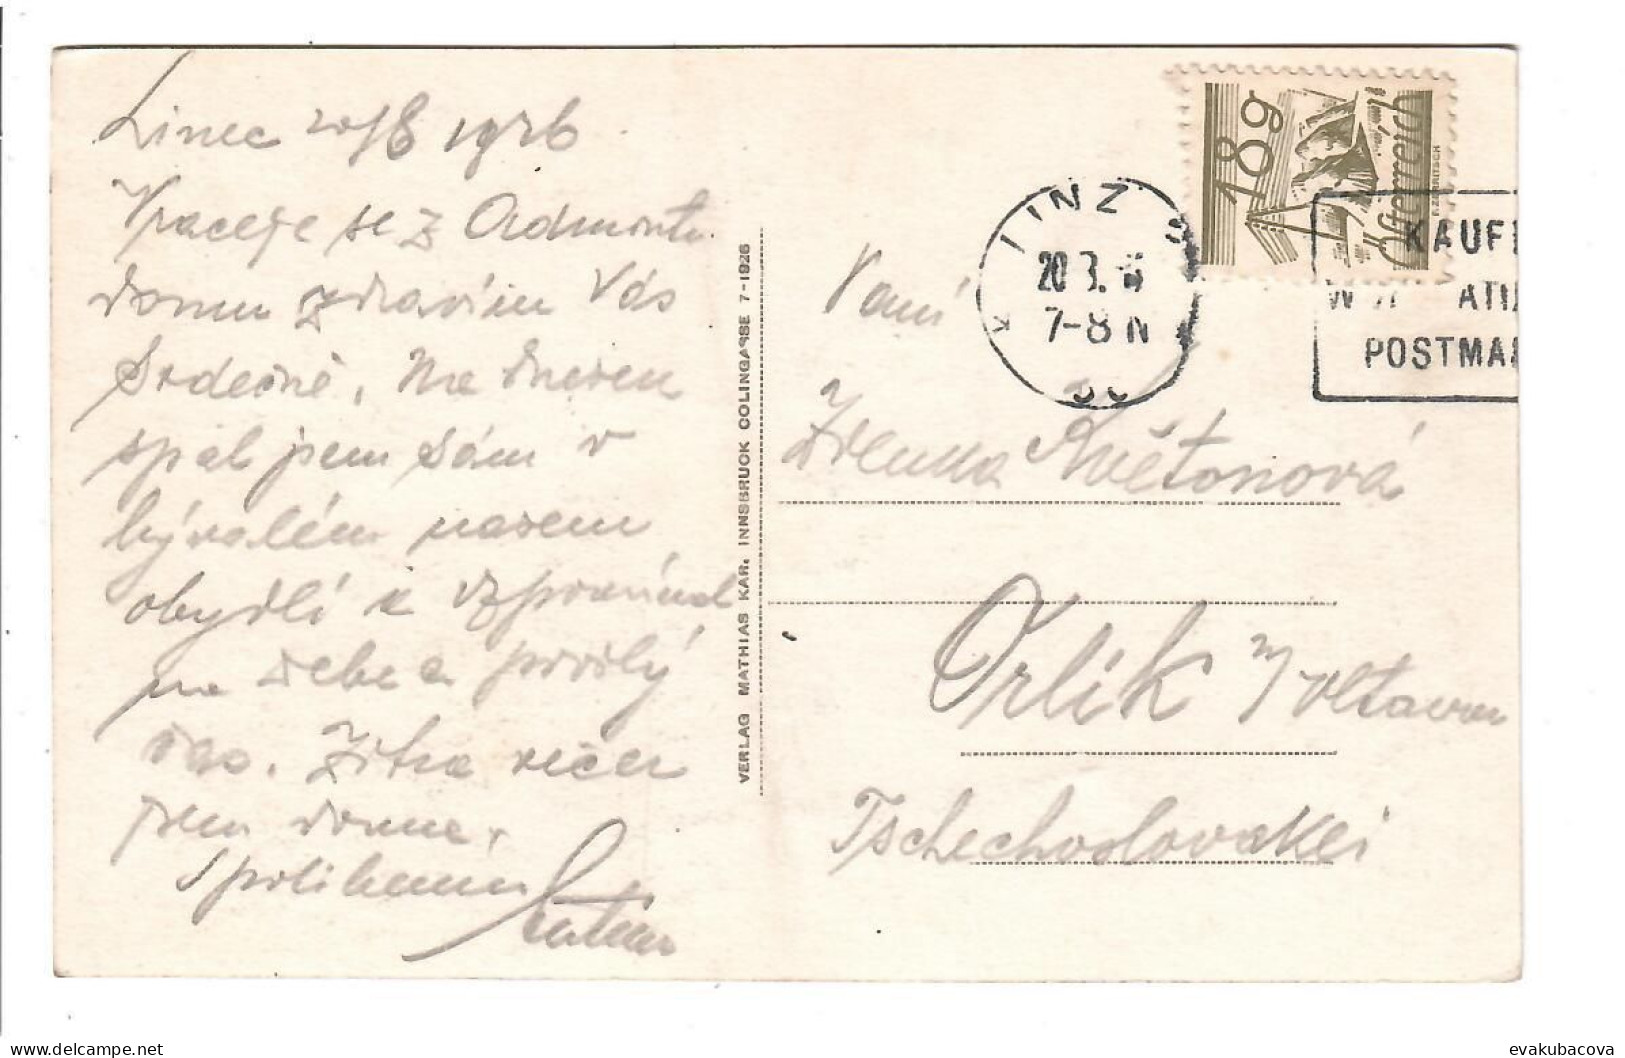 Linec 20/8 1926
Vraceje se z Admontu
domu zdravím Vás
srdečně. Na dnesek
spal jsem sám v
bývalém nasem
obydlí a vzpomínal
na tebe a prošlý
čas. Zítra večer
jsem doma.
S políbením
VERLAG MATHIAS KAR. INNSBRUCK COLINGASSE 7-1926
18g
Österreich
LINZ
20 8.
7-8 N
KAUF
W ATI
POSTMA
Paní
Zdenka Květonová
Orlík n/Vltavou
Tschechoslovakei
delcampe.net
evakubacova